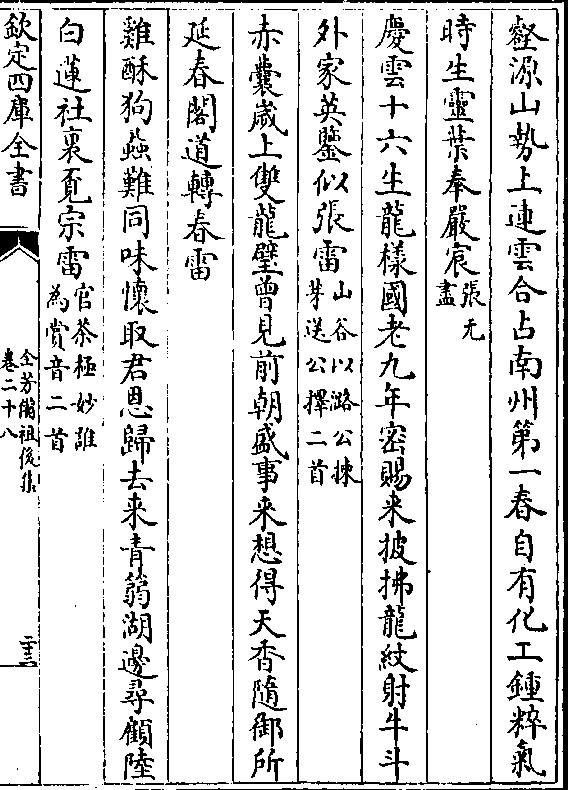 壑源山勢上連雲合占南州第一春自有化工鍾粹氣
時生靈葉奉嚴宸張无盡
慶雲十六生龍樣國老九年密賜来披拂龍紋射牛斗
外家英鑒似張雷山谷以潞公揀芽送公擇二首
赤囊歲上雙龍璧曾見前朝盛事来想得天香隨御所
延春閣道轉春雷
雞酥狗蝨難同味懷取君恩歸去来青篛湖邊尋顧陸
白蓮社裏覔宗雷官茶極妙誰為賞音二首
欽定四庫全書
全芳備祖後集
卷二十八
二十三